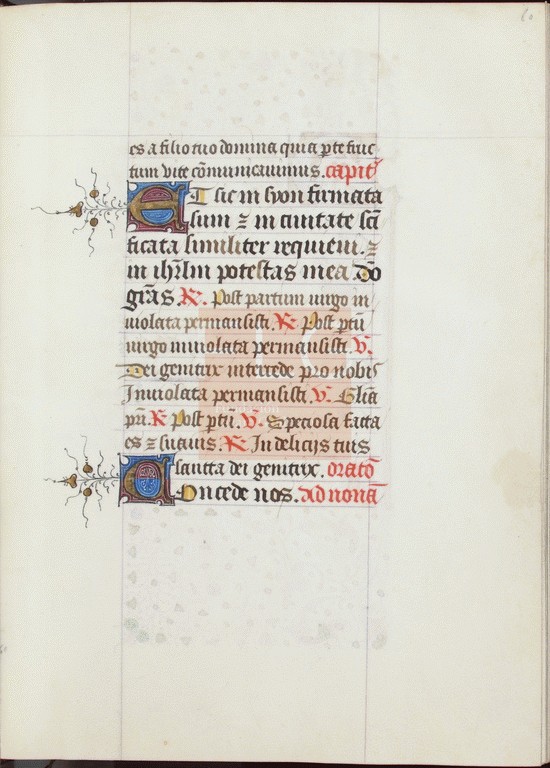 60
es a filio tuo domina quia p̲te fruc
tum vite cōmunicauimus. capitl̄
ET sic in syon firmata
sum ⁊ in ciuitate scī
ficata similiter requieui. ⁊
in ih̄rlm̄ potestas mea. Dō
grās. ℟. Post partum uirgo in
uiolata permansisti. ℟. Post ptū
uirgo inuiolata permansisti. ℣.
Dei genitrix intercede pro nobis
Inuiolata permansisti. ℣. Glīa
pr̄i. ℟ Post ptū. ℣. Speciosa facta
es ⁊ suauis. ℟. In delicijs tuis
sancta dei genitrix. oratō
Concede nos. Ad nonā